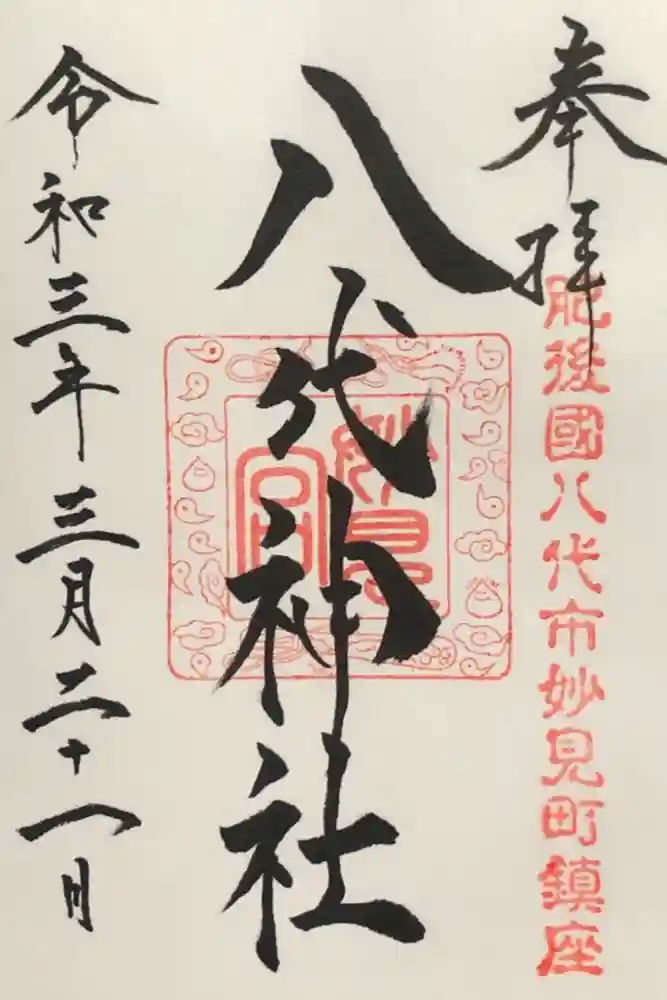 奉拝
肥後國八代市妙見町鎮座
八代神社
妙見
宮
令和三年三月二十一日